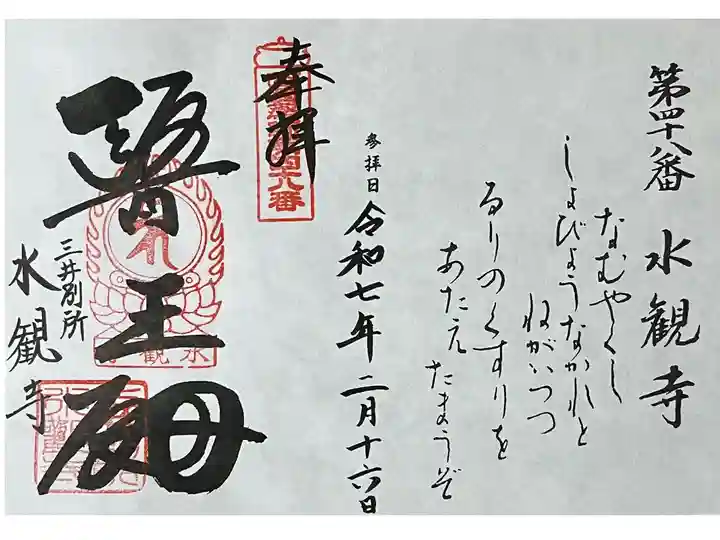 第四十八番 水観寺
なむやくし
しょびょうなかれと
ねがいつつ
るりのくすりを
あたえたまうぞ
参拝日 令和七年二月十六日
奉拝
醫王殿
三井別所
水観寺
水観